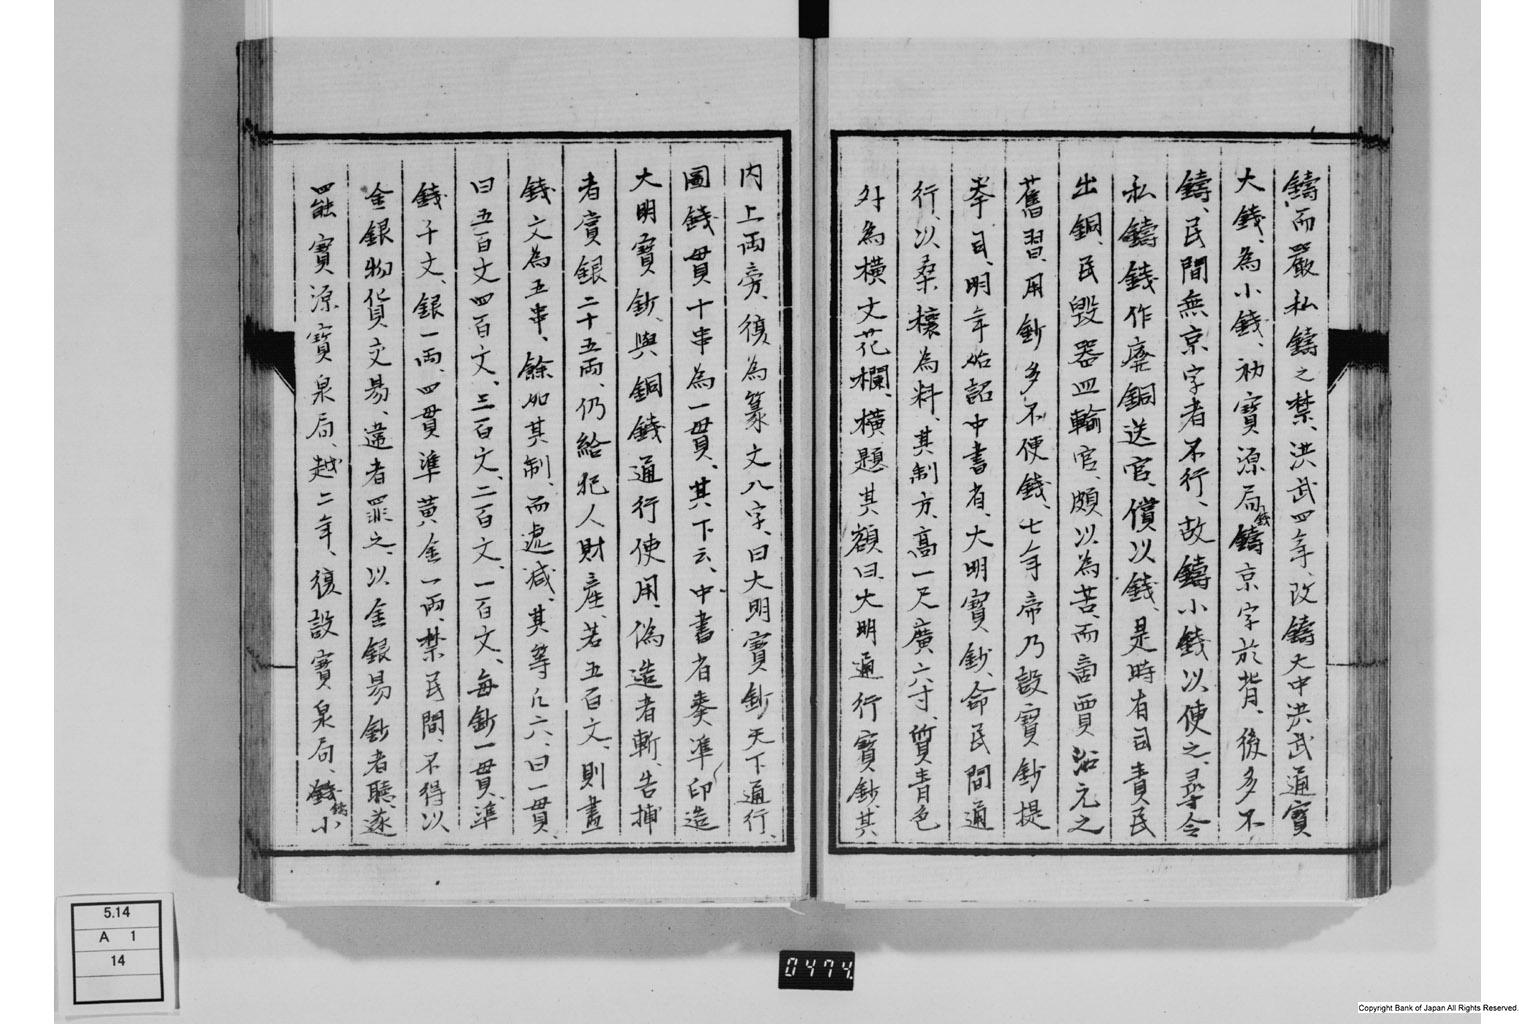 鑄、而嚴私鑄之禁、洪武四年、改鑄大中洪武通寳
大錢、為小錢、初寶源局錢鑄京字於背、後多不
鑄、民間無京字者不行、故鑄小錢以便之、尋令
私鑄錢作廢銅送官、償以錢、是時有司責民
出銅、民毀器皿輸官、頗以為苦、而商賈沿元之
舊習、用鈔多不便錢、七年帝乃設寶鈔提
擧司、明年始詔中書省、大明寶鈔、命民間通
行、以桑穰為料、其制方、高一尺廣六寸、質青色
外為橫文花欄、橫題其額曰、大明通行寶鈔其
內上兩旁、復為篆文八字、曰大明寶鈔天下通行、
圖錢貫、十串為一貫、其下云、中書省奏準印造
大明寶鈔、與銅錢通行使用、偽造者斬、告捕
者賞銀二十五兩、仍給犯人財產、若五百文、則畫
錢文為五串、餘如其制、而遞減、其等凡六、曰一貫、
曰五百文四百文、三百文、二百文、一百文、每鈔一貫、準
錢千文、銀一兩、四貫準黃金一兩、禁民間、不得以
金銀物貨交易、違者罪之、以金銀易鈔者聽、遂
罷寶源寶泉局、越二年、復設寶泉局、鑄小
5.14
A 1
14
0474.
Copyright Bank of Japan All Rights Reserved.